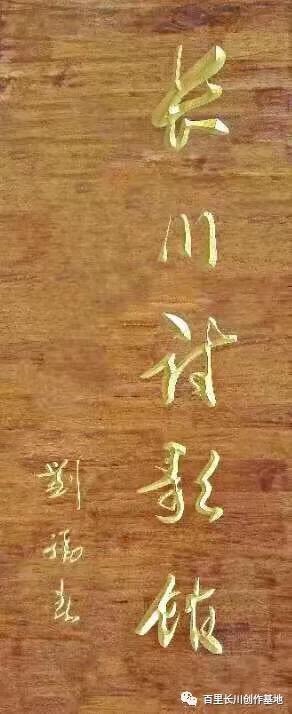 长川诗歌馆
劉福春
百里长川创作基地